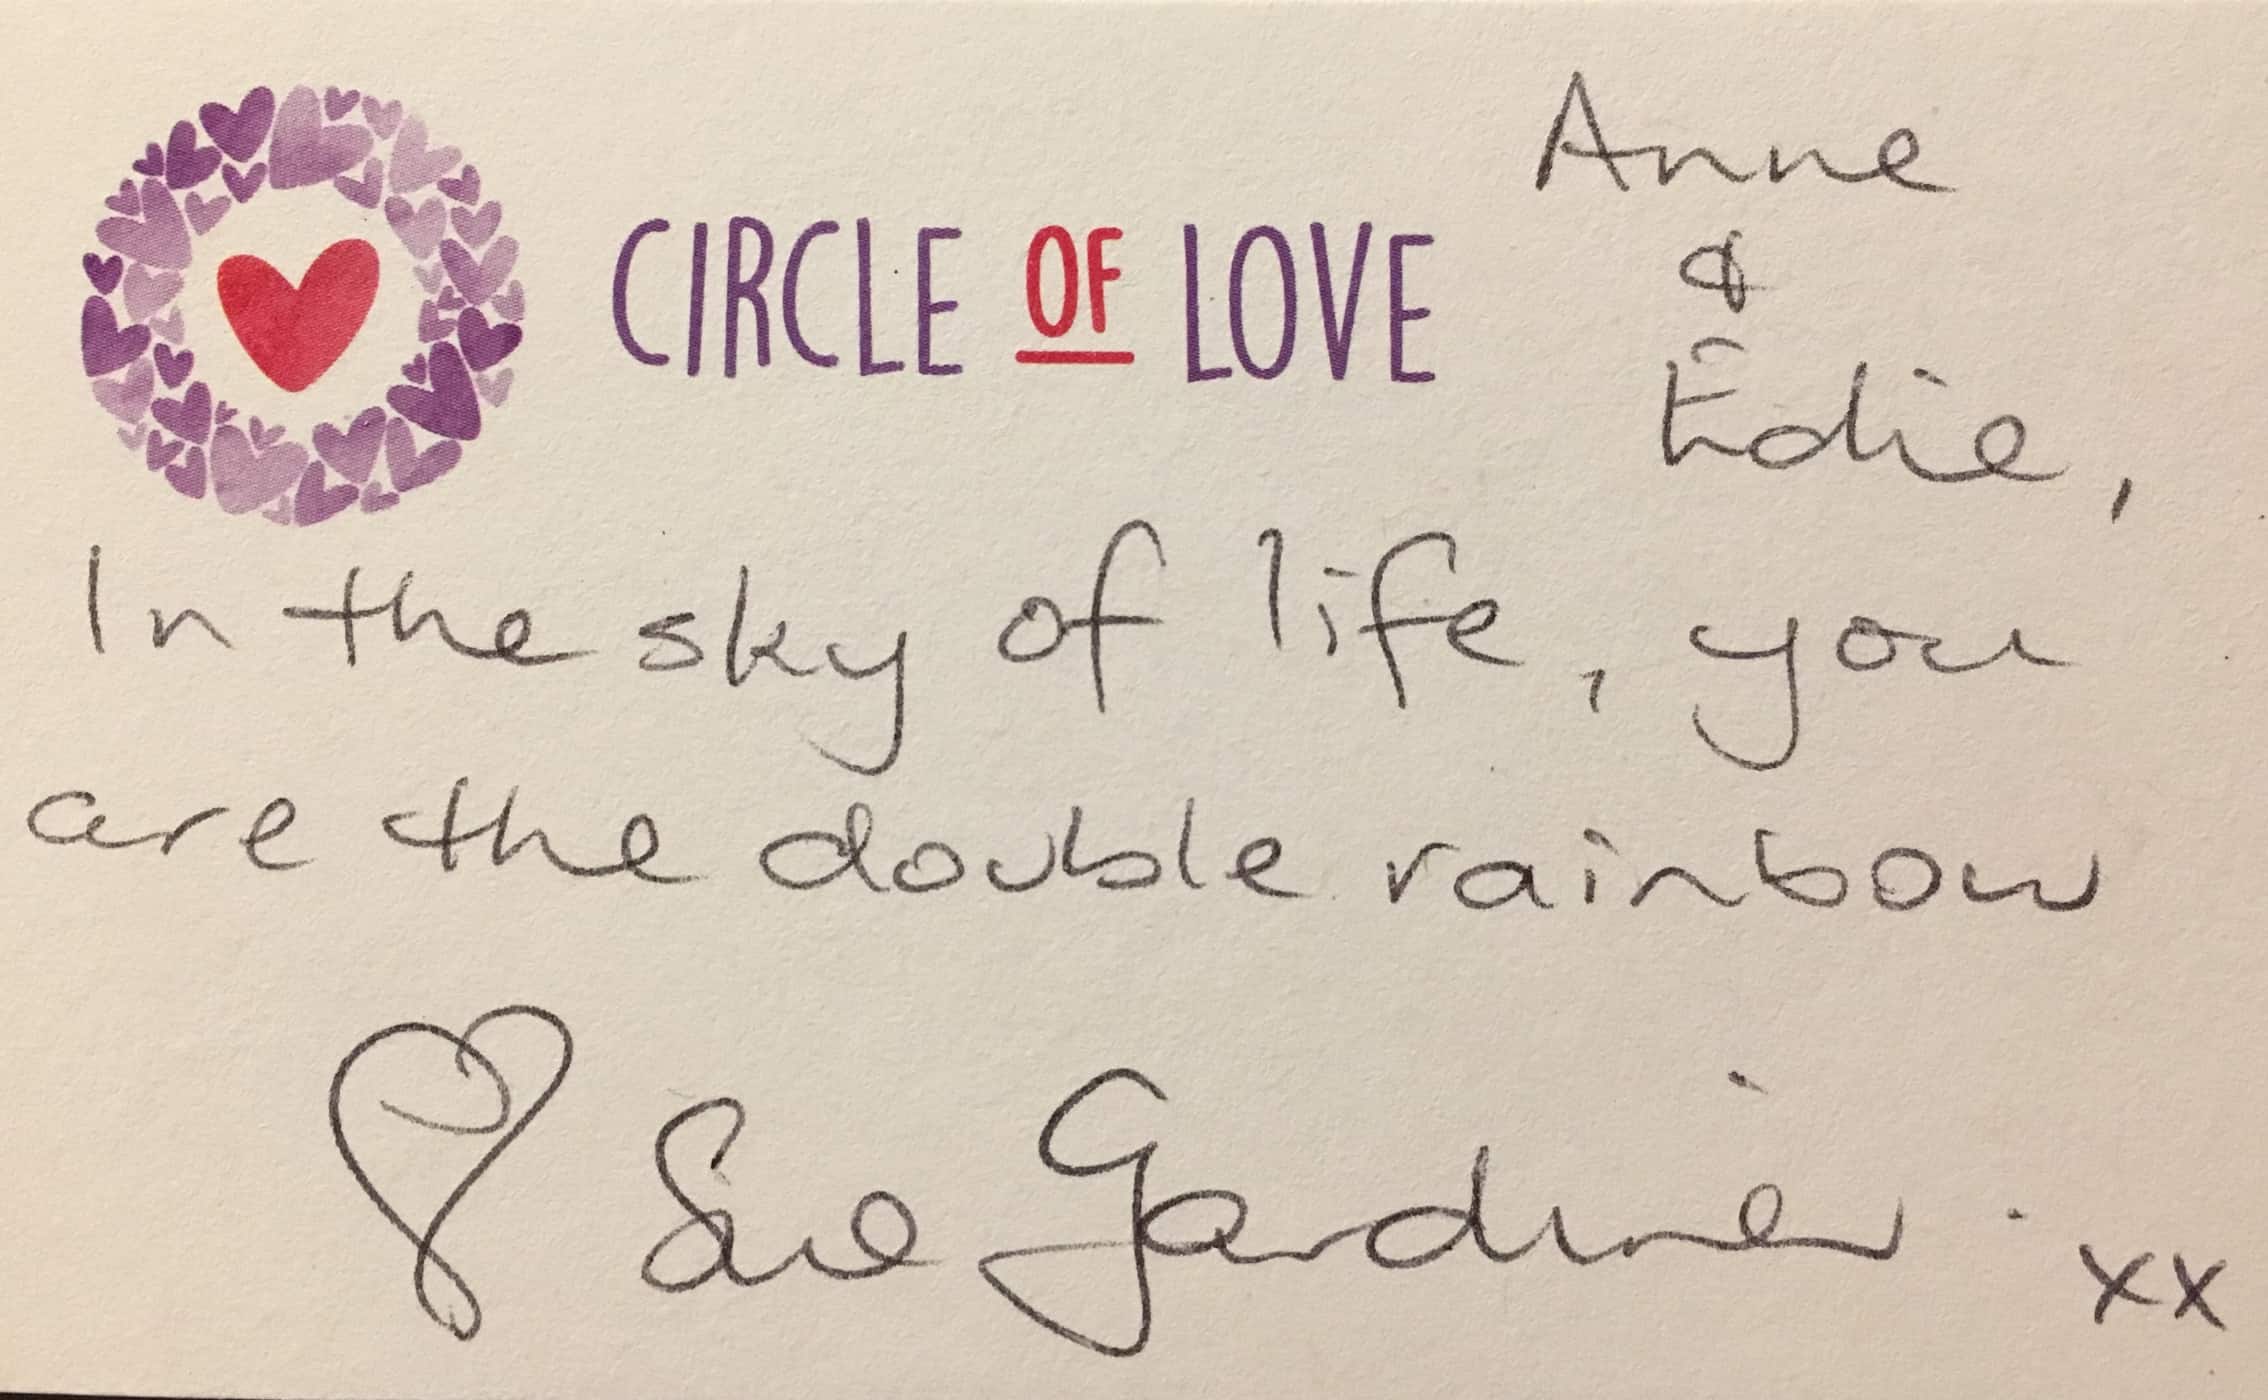 Anne
&
Edie,
CIRCLE OF LOVE
In the sky of life, you
are the double rainbow
Sue Gardiner.
xx